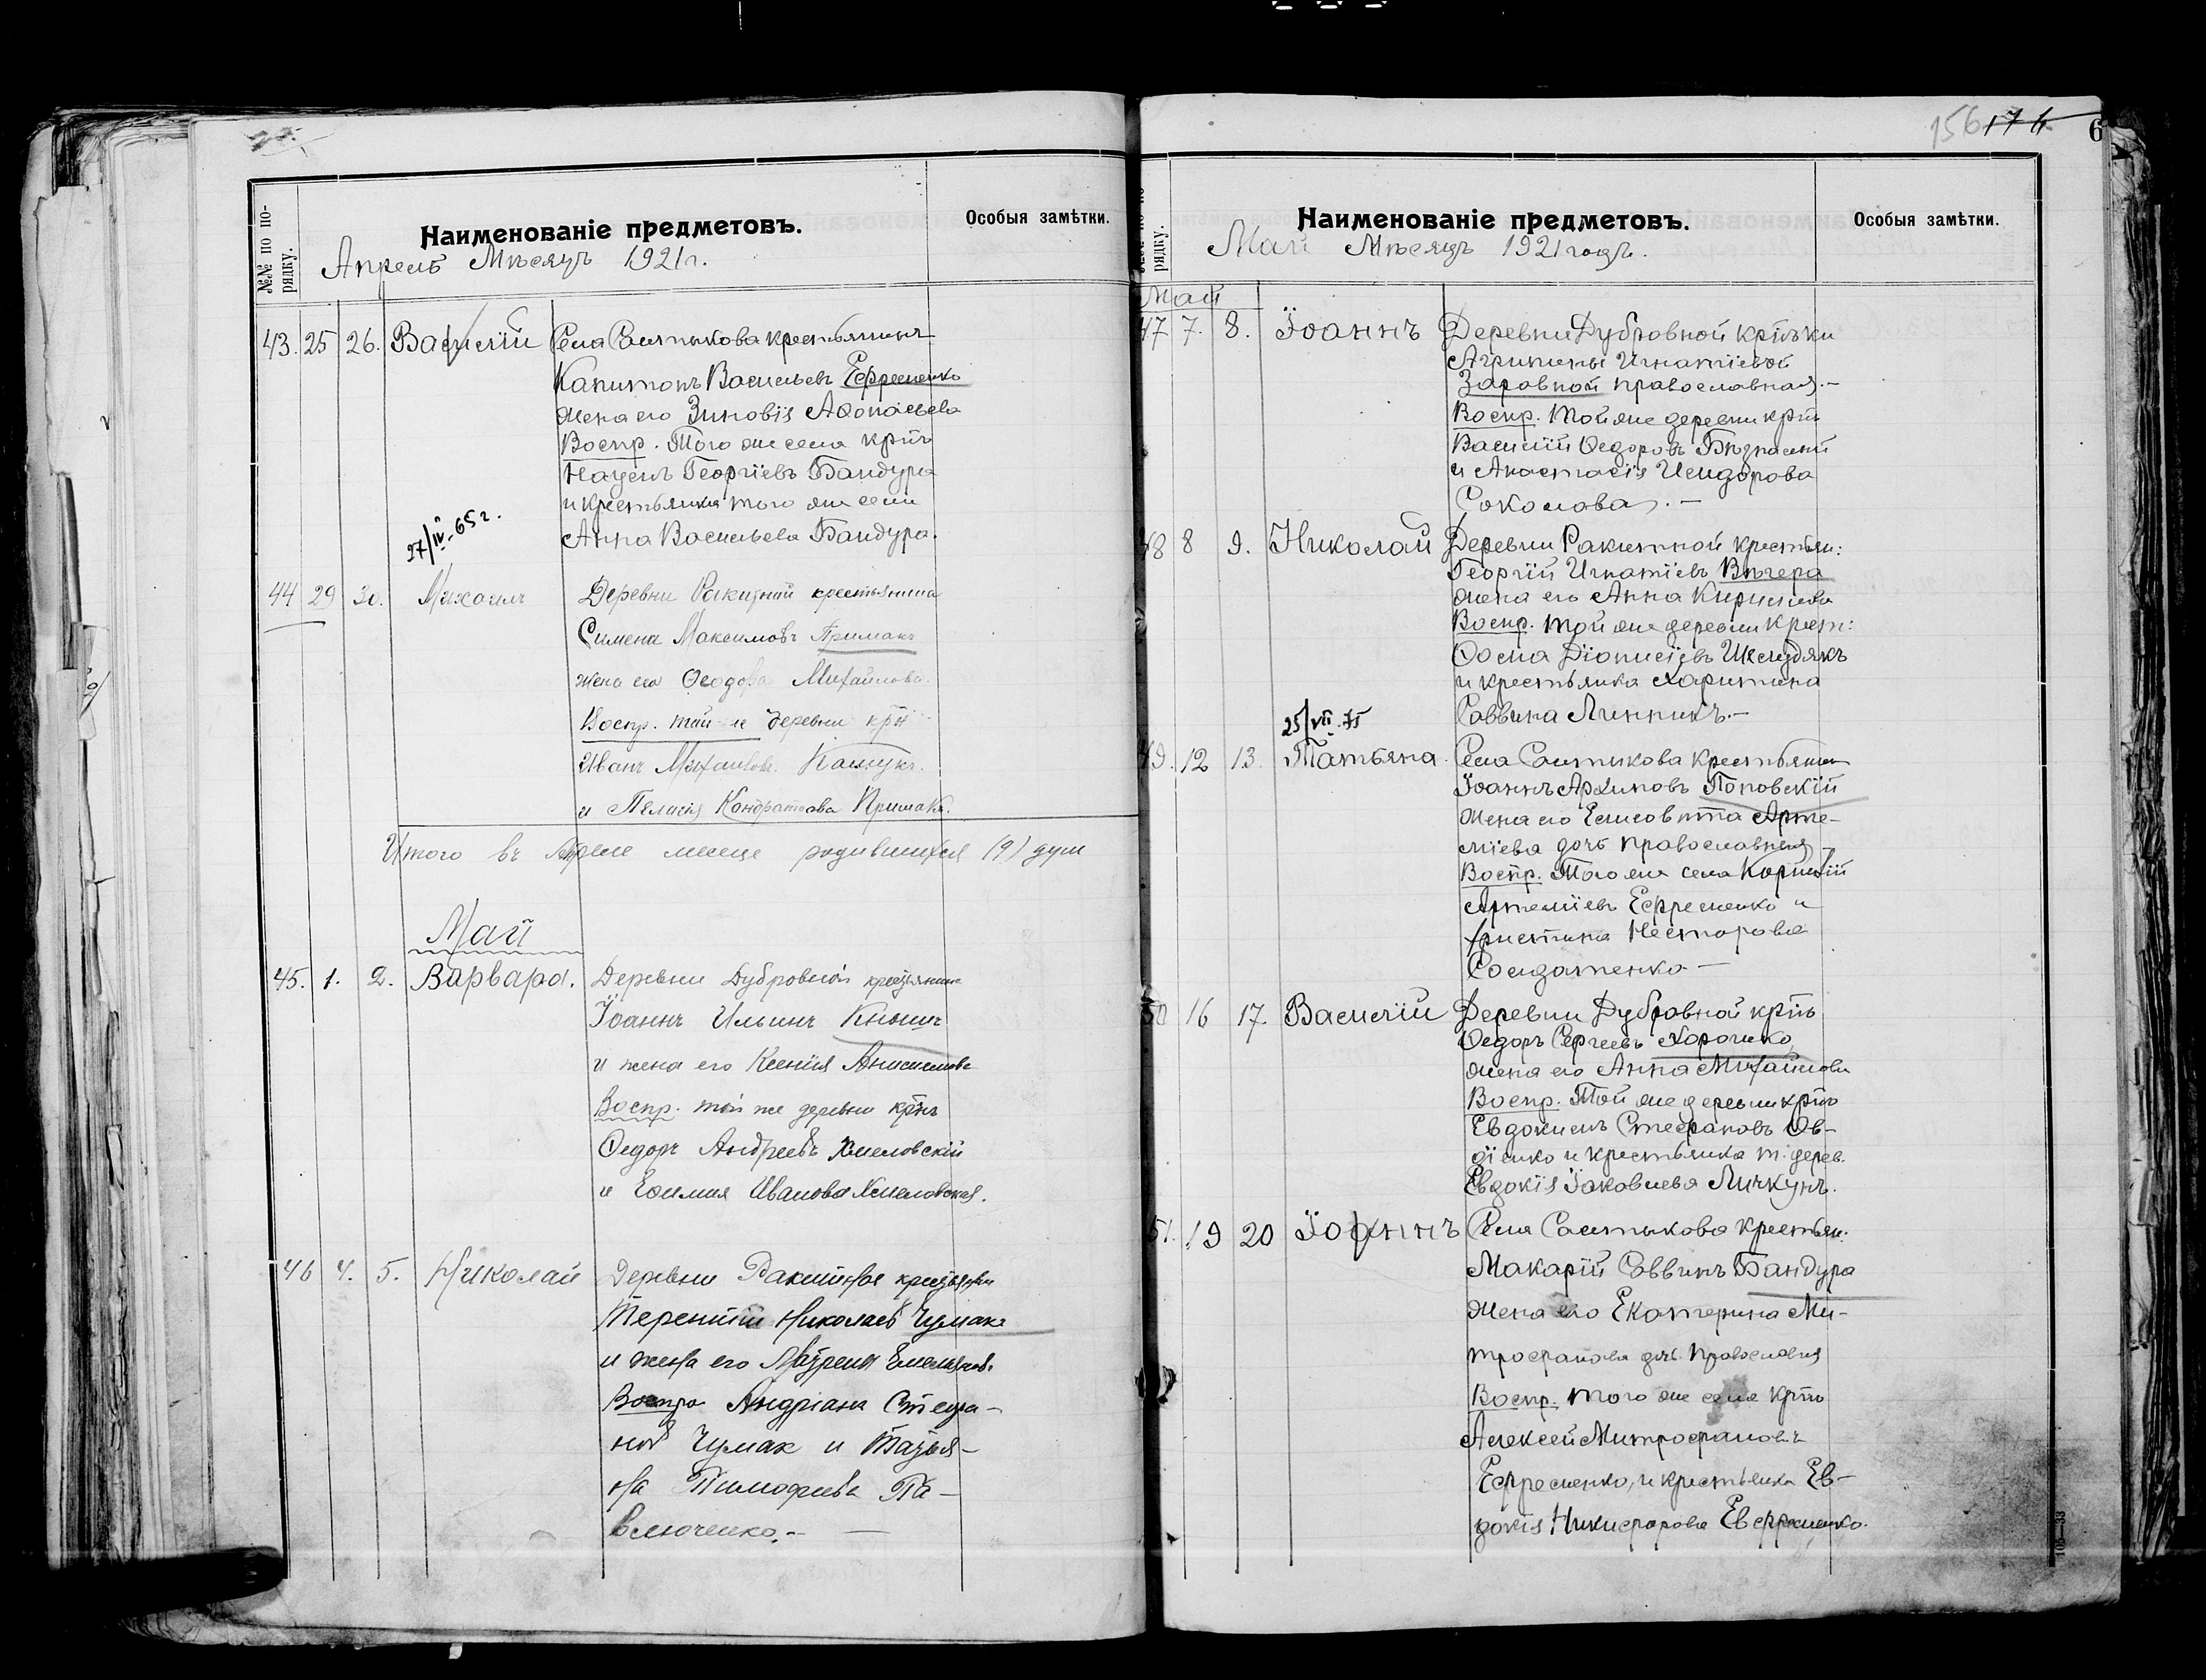 №№ по по-
рядку.
Наименованіе предметовъ.
Особыя замѣтки.
Апрель Мѣсяцъ 1921 г.
43. 25 26. Василій Села Салтыкова крестьянинъ
Капитонъ Васильевъ Ефременко
жена его Зиновія Аѳонасьева
Воспр. Того же села крнъ
Георгіевъ Бандура
и крестьянка того же села
Анна Васильева Бандура.
27/IV-65 г.
44 29 30. Михаилъ Деревни Ракитной крестьянина
Симена Максимовъ Примакъ
жена его Ѳеодора Михайлова.
Воспр. той-же деревни крн
Иванъ Михайловъ
и Кондратова Примакъ.
Итого въ месяце родившихся (9) душ
Май
45. 1. 2. Варвара. Деревни Дубровной крестьянинъ
Іоаннъ Ильинъ
и жена его Ксенія Анисимова
Воспр. той же деревни крнъ
Ѳедоръ Андреевъ Хмеловскій
и Евфимия Иванова Хмеловская.
46 4. 5. Николай Деревни Ракитной крестьянин
Терентій Николаев Чумакъ
и жена его Емельянов.
Воспр Андріана Стефа-
нов Чумак и Татья-
на Тимофеева Па-
влюченко.-
156 174 6
рядку.
Наименованіе предметовъ.
Особыя замѣтки.
Май Мѣсяцъ 1921 года.
Май
47 7. 8. Іоаннъ Деревни Дубровной кр̃нъки
Агрипины Игнатіевой
Заровной православная.-
Воспр. Той же деревни крнъ
Василій Ѳедоровъ
и Анастасія Исидорова
Соколова. -
48 8 9. Николай Деревни Ракитной крестьян:
Георгій Игнатіевъ Вечера
жена его Анна Кирилова
Воспр. той же деревни крест:
Ѳома Діонисіевъ
и крестьянка Харитина
Саввина Линникъ.-
25/VII.75
49. 12 13. Татьяна. Села Салтыкова крестьянин
Іоаннъ Архиповъ Поповскій
жена его Елисовѣта Арте-
міева дочь православныя -
Воспр. Того же села Корнилій
Артеміевъ Ефременко и
Христина Несторова
Солдатенко -
50 16 17. Василій Деревни Дубровной крнъ
Ѳедоръ Сергеевъ
жена его Анна Михайлова
Воспр. Той же деревни крнъ
Евдокимъ Стефановъ Ов-
діенко и крестьянка т. дерев.
Евдокія Іаковлева Личкунъ.
51. 19 20 Іоаннъ Села Салтыкова крестьян:
Макарій Саввинъ Бандура
жена его Екатерина Ми-
трофанова дочь православныя
Воспр. того же села крнъ
Алексей Митрофановъ
Ефременко, и крестьянка Ев-
докія Никифорова Ефременко.